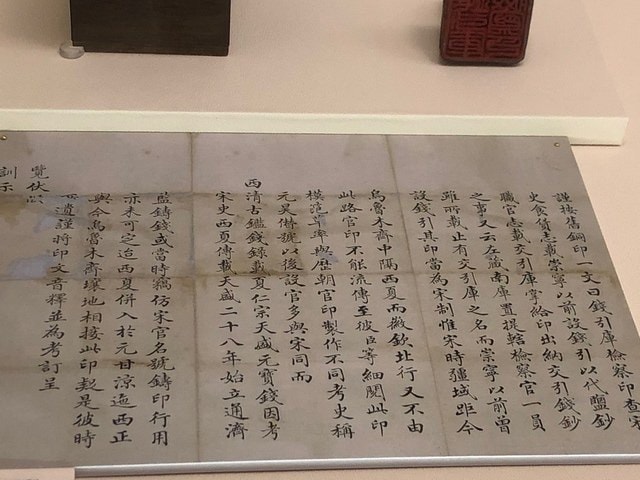 謹按舊銅印一文曰錢引庫檢察印查宋
史食貨志載崇寧以前設錢引以代鹽鈔
職官志載交引庫掌給印出納交引錢鈔
之事又云左藏南庫置提轄檢察官一員
雖所載止有交引庫之名而崇寧以前曾
設錢引其印當為宋制惟宋時疆域距今
烏魯木齊中隔西夏而徽欽北行又不由
此路官印不能流傳至彼臣等細閱此印
模範單與歷朝官印製作不同考史稱
元昊僭號以後設官多與宋同而
西清古鑑錢錄載夏仁宗天盛元寶錢因考
宋史西夏傳載天盛二十八年始立通濟
監鑄錢或當時竊仿宋官名號鑄印行用
亦未可定迨西夏併入於元甘涼迤西正
與今烏魯木齊壤地相接此印或是彼時
所遺謹將印文音釋並為考訂呈
覽伏候
訓示